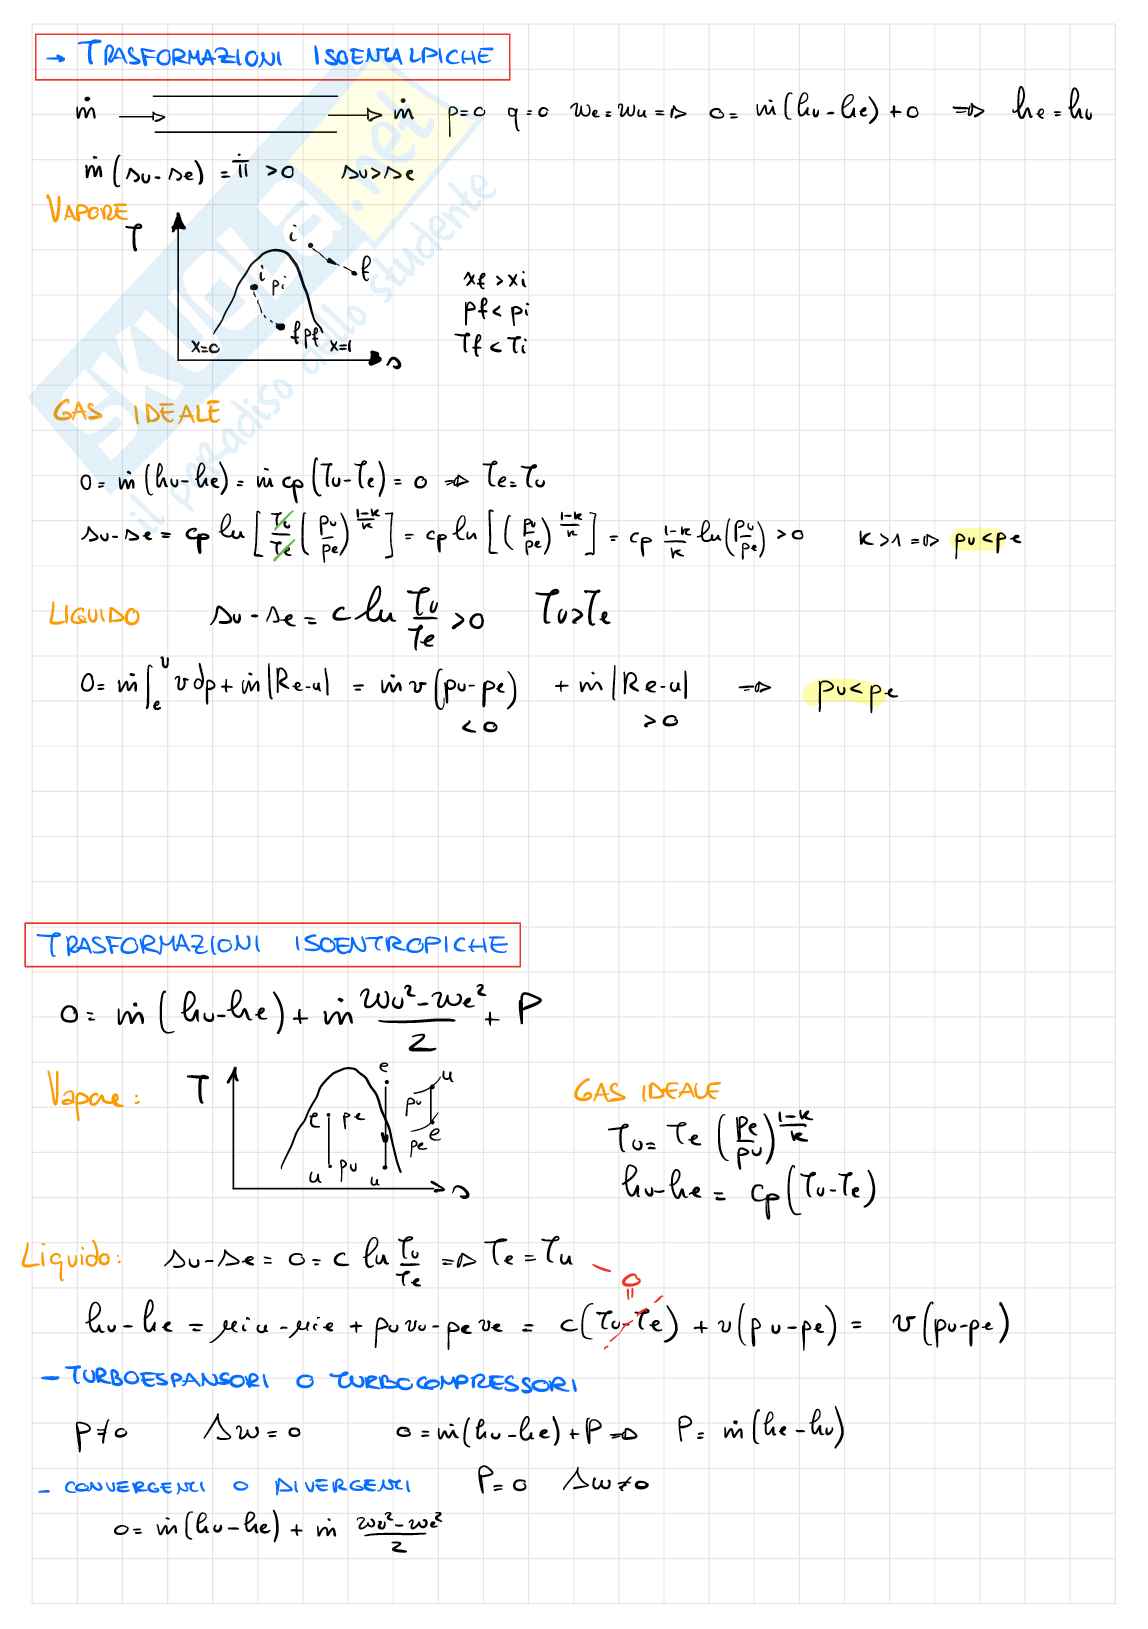 → TRASFORMAZIONI ISOENTALPICHE
ṁ → → ṁ p=0 q=0 we=wu => 0= ṁ(hu-he)+0 => he=hu
ṁ(su-se) = π̇ >0 su>se
VAPORE
T
i
f
i pi
f pf
x=0 x=1
s
xf>xi
pf<pi
Tf<Ti
GAS IDEALE
0= ṁ(hu-he)= ṁ cp(Tu-Te)= 0 => Te=Tu
su-se= cp ln[Tu/Te (pu/pe)^((1-k)/k)] = cp ln[(pu/pe)^((1-k)/k)] = cp (1-k)/k ln(pu/pe) >0 k>1 => pu<pe
LIQUIDO su-se= c ln Tu/Te >0 Tu>Te
0= ṁ∫_e^u v dp + ṁ|Re-u| = ṁ v(pu-pe) + ṁ|Re-u| => pu<pe
<0 >0
TRASFORMAZIONI ISOENTROPICHE
0= ṁ(hu-he)+ ṁ (wu²-we²)/2 + P
Vapore: T
e
e pe
u pu
u
u
pu
pe
e
s
GAS IDEALE
Tu= Te (pe/pu)^((1-k)/k)
hu-he= cp(Tu-Te)
Liquido: su-se= 0= c ln Tu/Te => Te=Tu
0
=
hu-he = μiu-μie + pu vu-pe ve = c(Tu-Te) + v(pu-pe) = v(pu-pe)
- TURBOESPANSORI O TURBOCOMPRESSORI
P≠0 Δw=0 0=ṁ(hu-he)+P => P= ṁ(he-hu)
- CONVERGENTI O DIVERGENTI P=0 Δw≠0
0= ṁ(hu-he) + ṁ (wu²-we²)/2
SKUOLA.net
il paradiso dello studente